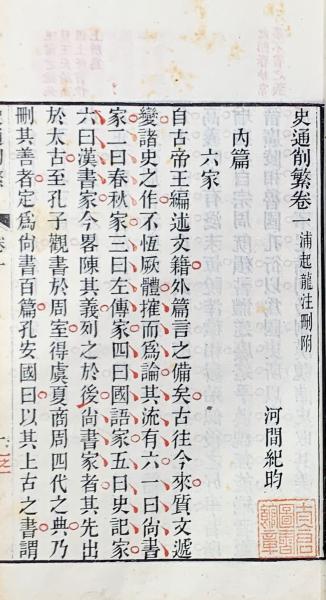 史通削繁卷一 浦起龍注刪附
河間紀昀
內篇
六家
自古帝王編述文籍外篇言之備矣古往今來質文遞
變諸史之作不恆厥體搉而為論其流有六一曰尚書
家二曰春秋家三曰左傳家四曰國語家五曰史記家
六曰漢書家今畧陳其義列之於後尚書家者其先出
於太古至孔子觀書於周室得虞夏商周四代之典乃
刪其善者定為尚書百篇孔安國曰以其上古之書謂